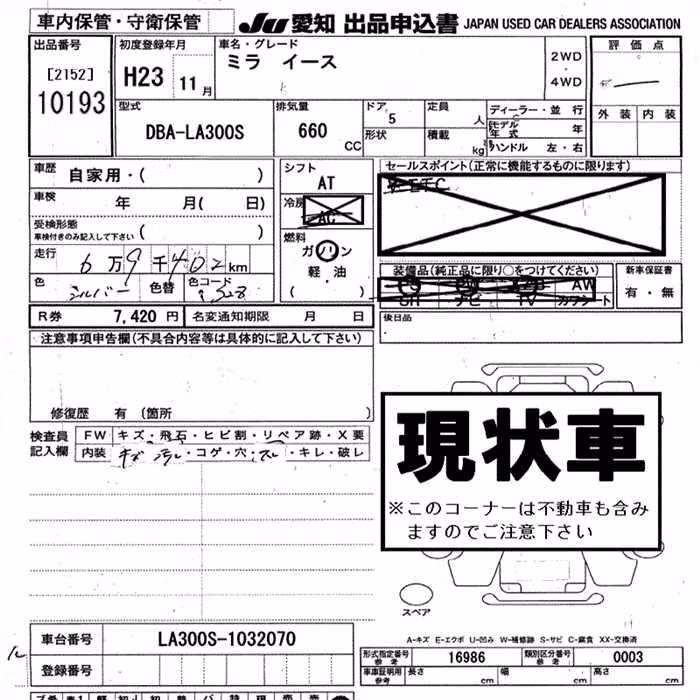 車内保管・守衛保管 JU 愛知 出品申込書 JAPAN USED CAR DEALERS ASSOCIATION
出品番号 初度登録年月 車名・グレード 評価点
[2152] H23 11月 ミラ イース 2WD・4WD
10193
型式 排気量 ドア 定員 ディーラー・並行 外装 内装
DBA-LA300S 660 CC 5 人 モデル年式 年
形状 積載 kg ハンドル 左・右
車歴 自家用・( ) シフト AT セールスポイント(正常に機能するものに限ります)
車検 年 月( 日) 冷房 AC ETC
受検形態 ( )
車検付きのみ記入して下さい
燃料 ガソリン
走行 6万9千402km 軽・油
( )
装備品(純正品に限り○をつけてください) 新車保証書
AW 有・無
ナビ TV カワシート
色 シルバー 色替 色コード
R券 7,420円 名変通知期限 月 日 後日品
注意事項申告欄(不具合内容等は具体的に記入して下さい)
修復歴 有(箇所 )
検査員記入欄 FW キズ・飛石・ヒビ割・リペア跡・X要
内装 キズ 汚レ・コゲ・穴・スレ・キレ・破レ
現状車
※このコーナーは不動車も含み
ますのでご注意下さい
スペア
A-キズ E-エクボ U-凹み W-補修跡 S-サビ C-腐食 XX-交換済
車台番号 LA300S-1032070
登録番号
型式指定番号 参考 16986 類別区分番号 参考 0003
車庫証明用 参考 長さ cm 幅 cm 高さ cm